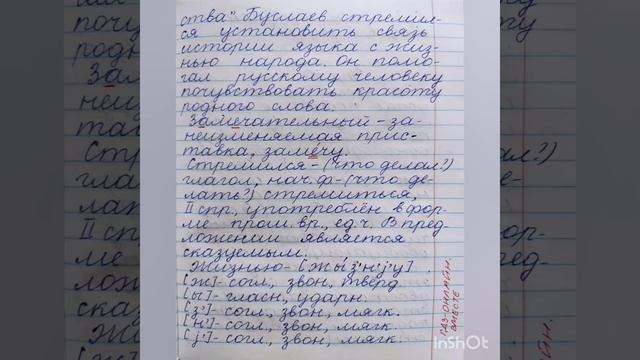 ства". Буслаев стремил-
ся установить связь
истории языка с жиз-
нью народа. Он помо-
гал русскому человеку
почувствовать красоту
родного слова.
Замечательный - за-
неизменяемая прис-
тавка, замечу.
Стремился - (что делал?)
глагол, нач. ф - (что де-
лать?) стремиться,
II спр., употреблён в фор-
ме прош. вр., ед. ч. В пред-
ложении является
сказуемым.
Жизнью - [жыз'н'j'у]
[ж] - согл, звон, тверд.
[ы] - гласн, ударн.
[з'] - согл, звон, мягк.
[н'] - согл, звон, мягк.
[j'] - согл, звон, мягк.
ГДЗ-ОНЛАЙН.
ВМЕСТЕ
InShOt